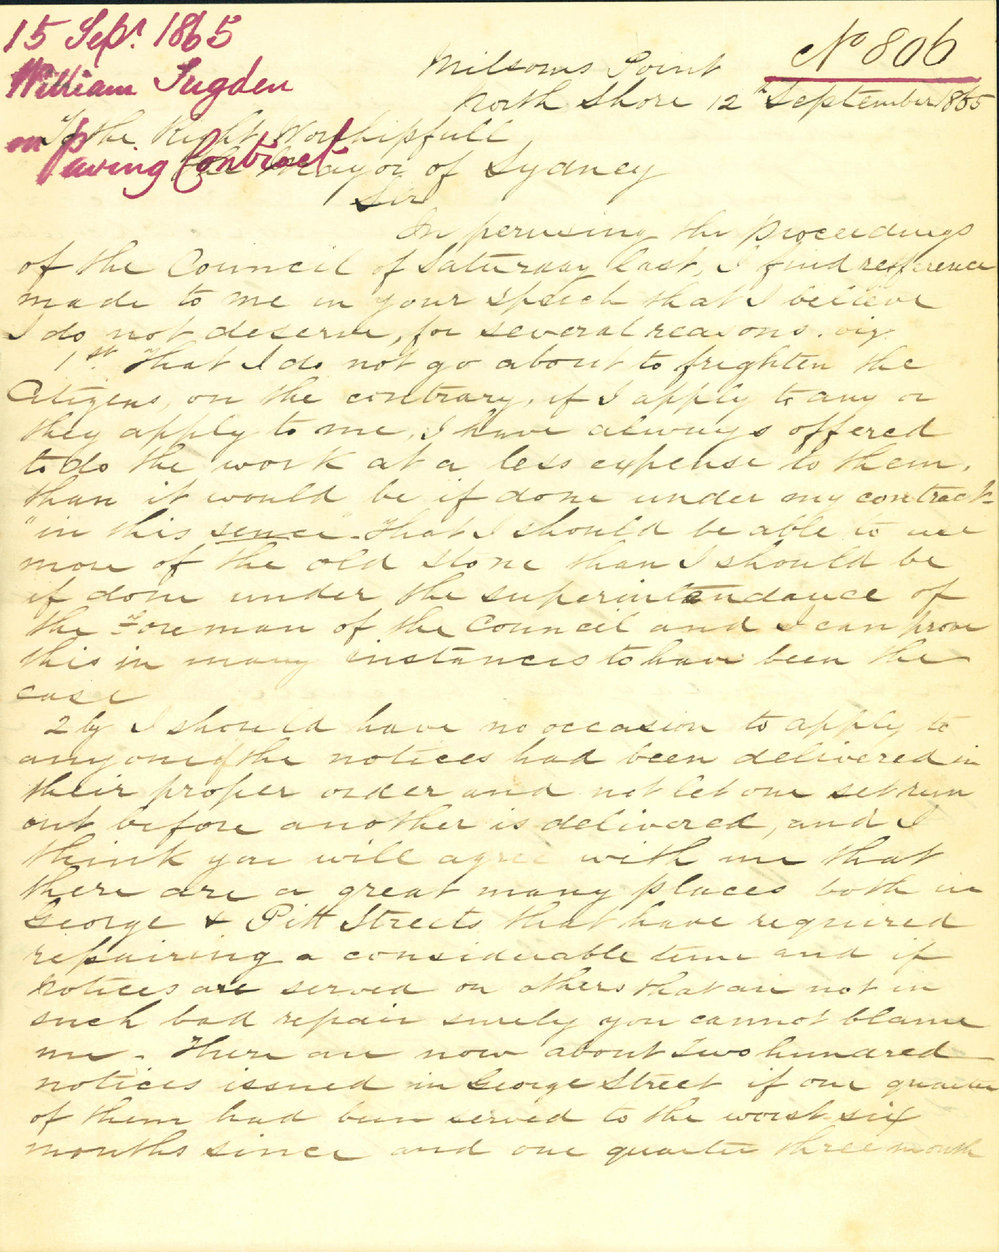 15 Sepr. 1865
William Sugden
on Paving Contract
No 806
Milsoms Point
North Shore 12th September 1865
To the Right Worshipfull
the Mayor of Sydney
Sir
In perusing the proceedings
of the Council of Saturday last, I find refference
made to me in your speech that I believe
I do not deserve, for several reasons. viz.
1st. That I do not go about to frighten the
Citizens, on the contrary, if I apply to any or
they apply to me, I have always offered
to do the work at a less expense to them,
than it would be if done under my contract
"in this sence" that I should be able to use
more of the old stone than I should be
if done under the superintendance of
the Foreman of the Council and I can prove
this in many instances to have been the
case
2ly I should have no occasion to apply to
any one if the notices had been delivered in
their proper order and not let one set run
out before another is delivered, and I
think you will agree with me that
there are a great many places both in
George & Pitt Streets that have required
repairing a considerable time and if
notices are served on others that are not in
such bad repair surely you cannot blame
me - There are now about two hundred
notices issued in George Street if one quarter
of them had been served to the worst six
months since and one quarter three month